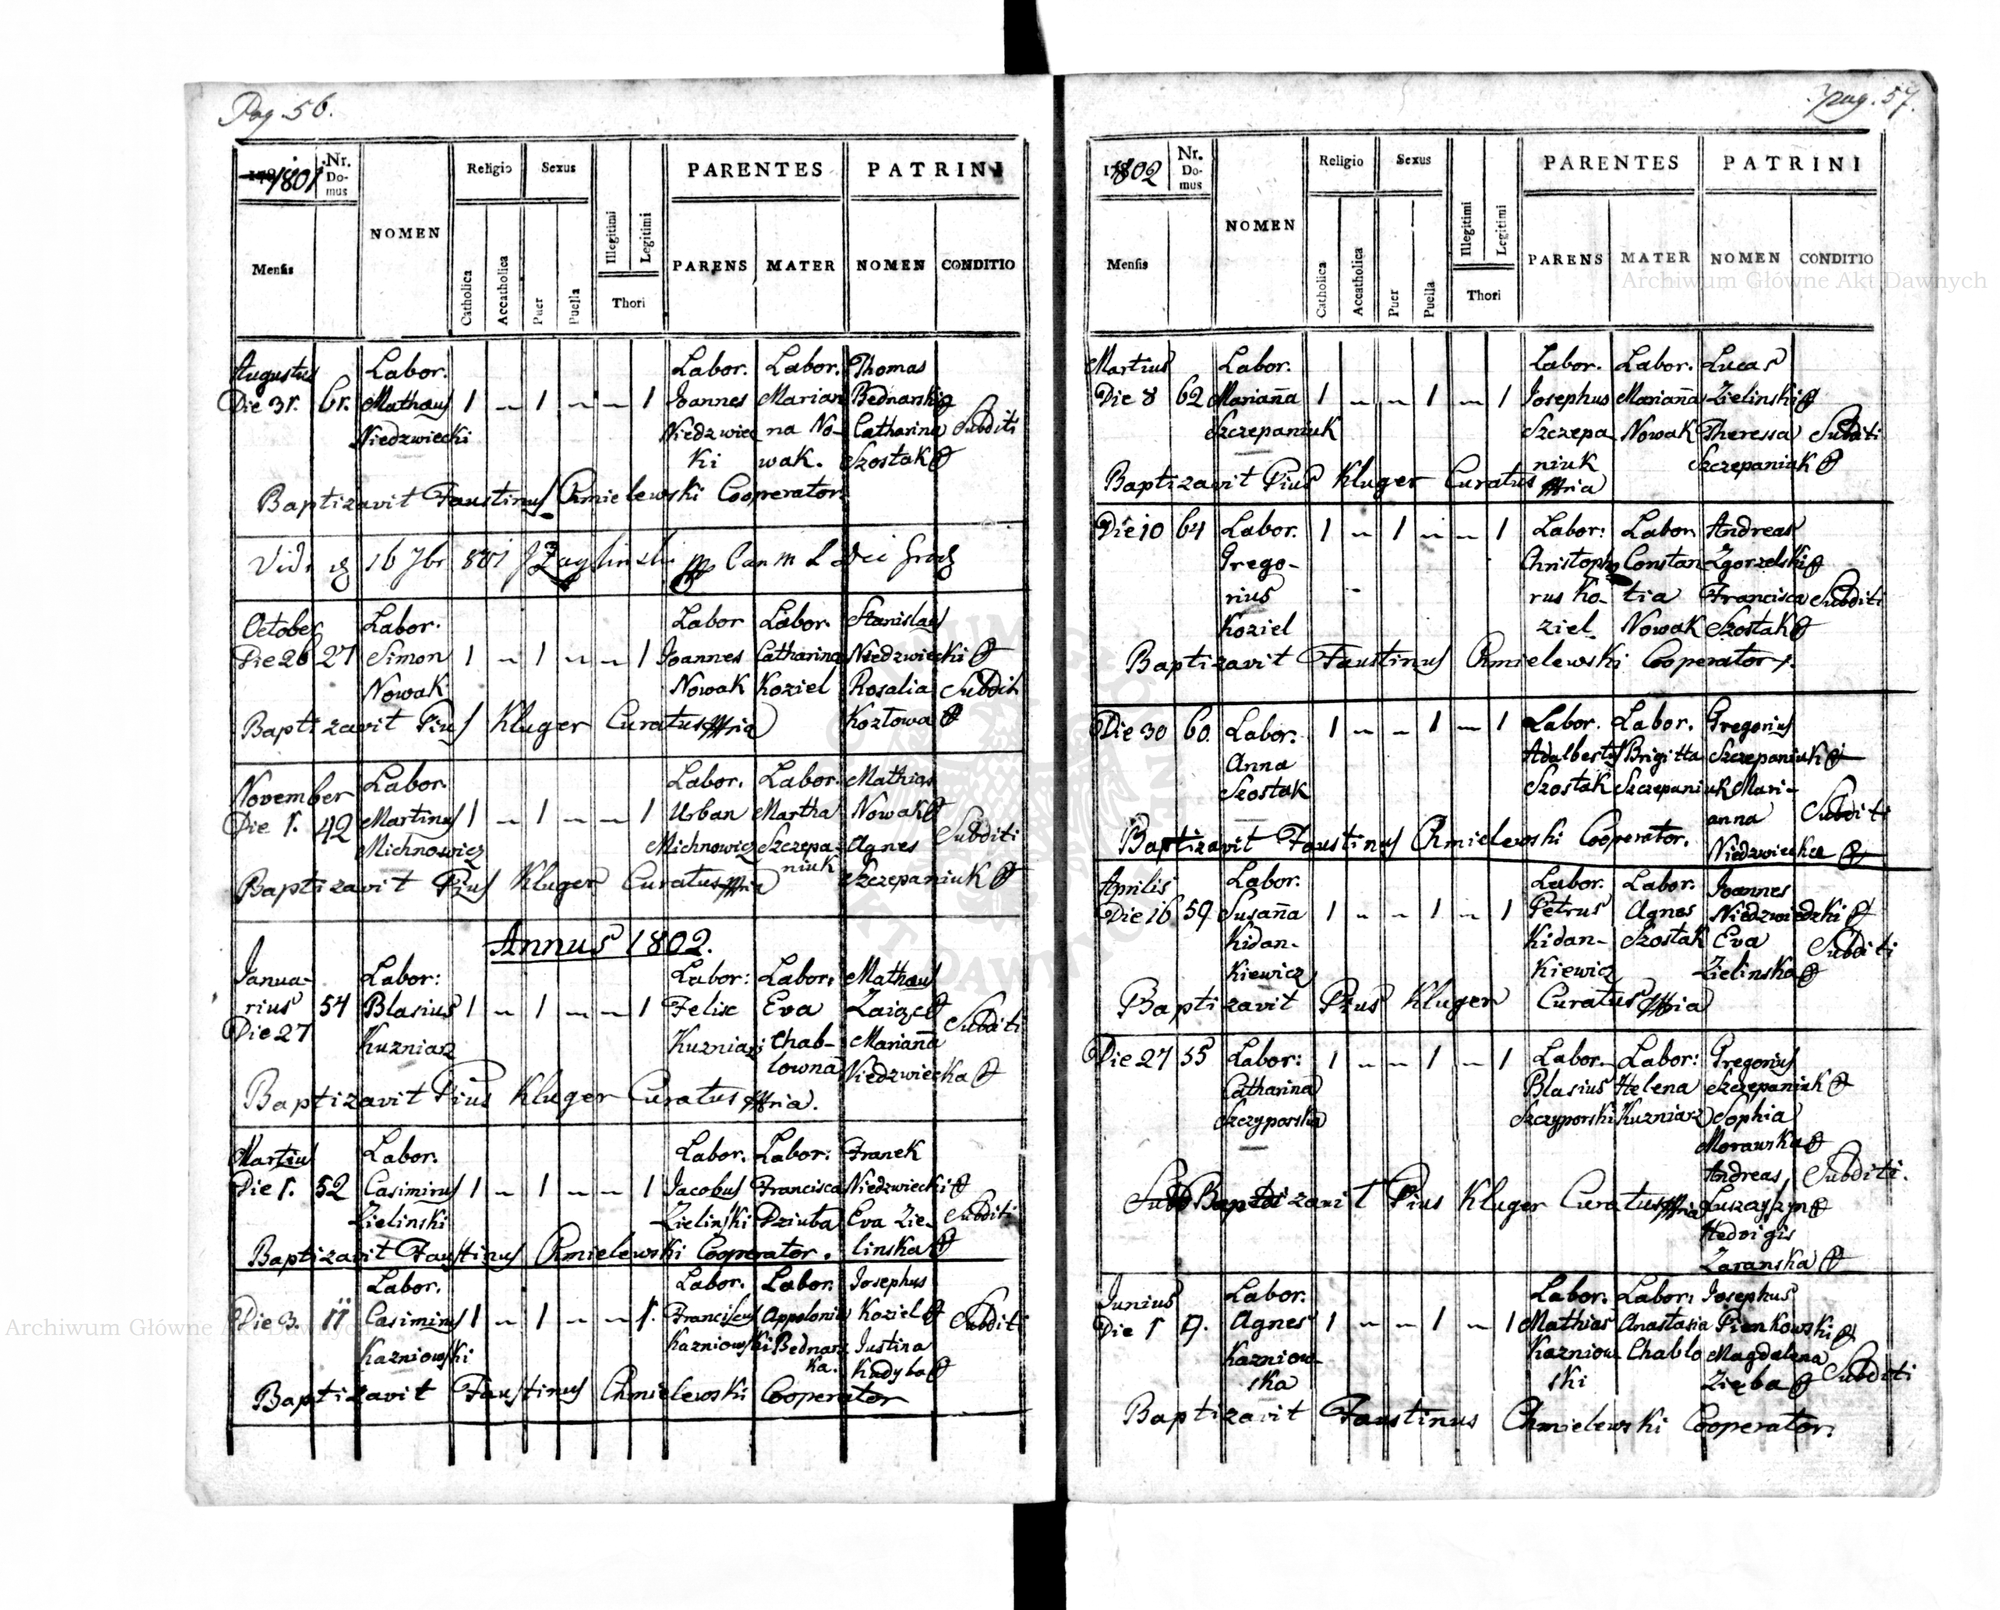 Pag. 56.
1801
Nr. Domus
NOMEN
Religio
Sexus
Illegitimi
Legitimi
PARENTES
PATRINI
Mensis
Catholica
Accatholica
Puer
Puella
Thori
PARENS
MATER
NOMEN
CONDITIO
Augustus Labor. Labor. Labor. Thomas
Die 31. 61. Mathaus 1 – 1 – – 1 Joannes Marian Bednarski
Niedzwiecki Niedzwiec na No- Catharina Subditi
ki wak. Szostak
Baptizavit Faustinus Chmielewski Cooperator.
Vidi 16 7br 801
October Labor. Labor Labor. Stanislaus
Die 28 27 Simon 1 – 1 – – 1 Joannes Catharina Niedzwiecki
Nowak Nowak Koziel Rosalia Subditi
Baptizavit Pius Kluger Curatus mpria Kozłowa
November Labor. Labor. Labor. Mathias
Die 1. 42 Martinus 1 – 1 – – 1 Urban Martha Nowak
Michnowicz Michnowicz Szczepa- Agnes Subditi
Baptizavit Pius Kluger Curatus mpria niuk Szczepaniuk
Annus 1802.
Janua- Labor: Labor: Labor: Mathaus
rius 54 Blasius 1 – 1 – – 1 Felix Eva Zaiąc
Die 27 Kuzniarz Kuzniarz Chab- Marianna Subditi
lowna Niedzwiecka
Baptizavit Pius Kluger Curatus mpria.
Martius Labor. Labor. Labor: Franek
Die 1. 52 Casimirus 1 – 1 – – 1 Jacobus Francisca Niedzwiecki
Zielinski Zielinski Dziuba Eva Zie- Subditi
Baptizavit Faustinus Chmielewski Cooperator. linska
Labor. Labor. Labor. Josephus
Die 3. 11 Casimirus 1 – 1 – – 1. Franciscus Appolonia Koziel Subditi
Kazniowski Kazniowski Bednarz Justina
ka. Kadyba
Baptizavit Faustinus Chmielewski Cooperator
pag. 57.
1802
Nr. Domus
NOMEN
Religio
Sexus
Illegitimi
Legitimi
PARENTES
PATRINI
Mensis
Catholica
Accatholica
Puer
Puella
Thori
PARENS
MATER
NOMEN
CONDITIO
Martius Labor. Labor. Labor. Lucas
Die 8 62 Marian̄a 1 – – 1 – 1 Josephus Marian̄a Zielinski
Szczepaniuk Szczepa Nowak Theressa Subditi
niuk Szczepaniuk
Baptizavit Pius Kluger Curatus mpria
Die 10 64 Labor. 1 – 1 – – 1 Labor: Labor Andreas
Grego- Christopho Constan Zgorzelski
rius rus Ko- tia Francisca Subditi
Koziel ziel Nowak Szostak
Baptizavit Faustinus Chmielewski Cooperator.
Die 30 60. Labor. 1 – – 1 – 1 Labor. Labor. Gregorius
Anna Adalbertus Brigitta Szczepaniuk
Szostak Szostak Szczepaniuk Mari-
anna Subditi
Baptizavit Faustinus Chmielewski Cooperator. Niedzwiecka
Aprilis Labor. Labor. Labor. Joannes
Die 16 59. Susan̄a 1 – – 1 – 1 Petrus Agnes Niedzwiedzki
Kidan- Kidan- Szostak Eva Subditi
kiewicz kiewicz Zielinska
Baptizavit Pius Kluger Curatus mpria
Die 27 55 Labor: 1 – – 1 – 1 Labor. Labor: Gregorius
Catharina Blasius Helena Szczepaniuk
Szczyporska Szczyporski Kuzniarz Sophia
Morawska
Andreas Subditi.
Baptizavit Pius Kluger Curatus mpria Łuszaszyn
Hedvigis
Zaranska
Junius Labor. Labor. Labor: Josephus
Die 1 9. Agnes 1 – – 1 – 1 Mathias Anastasia Pienkowski
Kazniow- Kazniow- Chablo Magdalena Subditi
ska ski Zięba
Baptizavit Faustinus Chmielewski Cooperator.
Archiwum Główne Akt Dawnych
Archiwum Główne Akt Dawnych